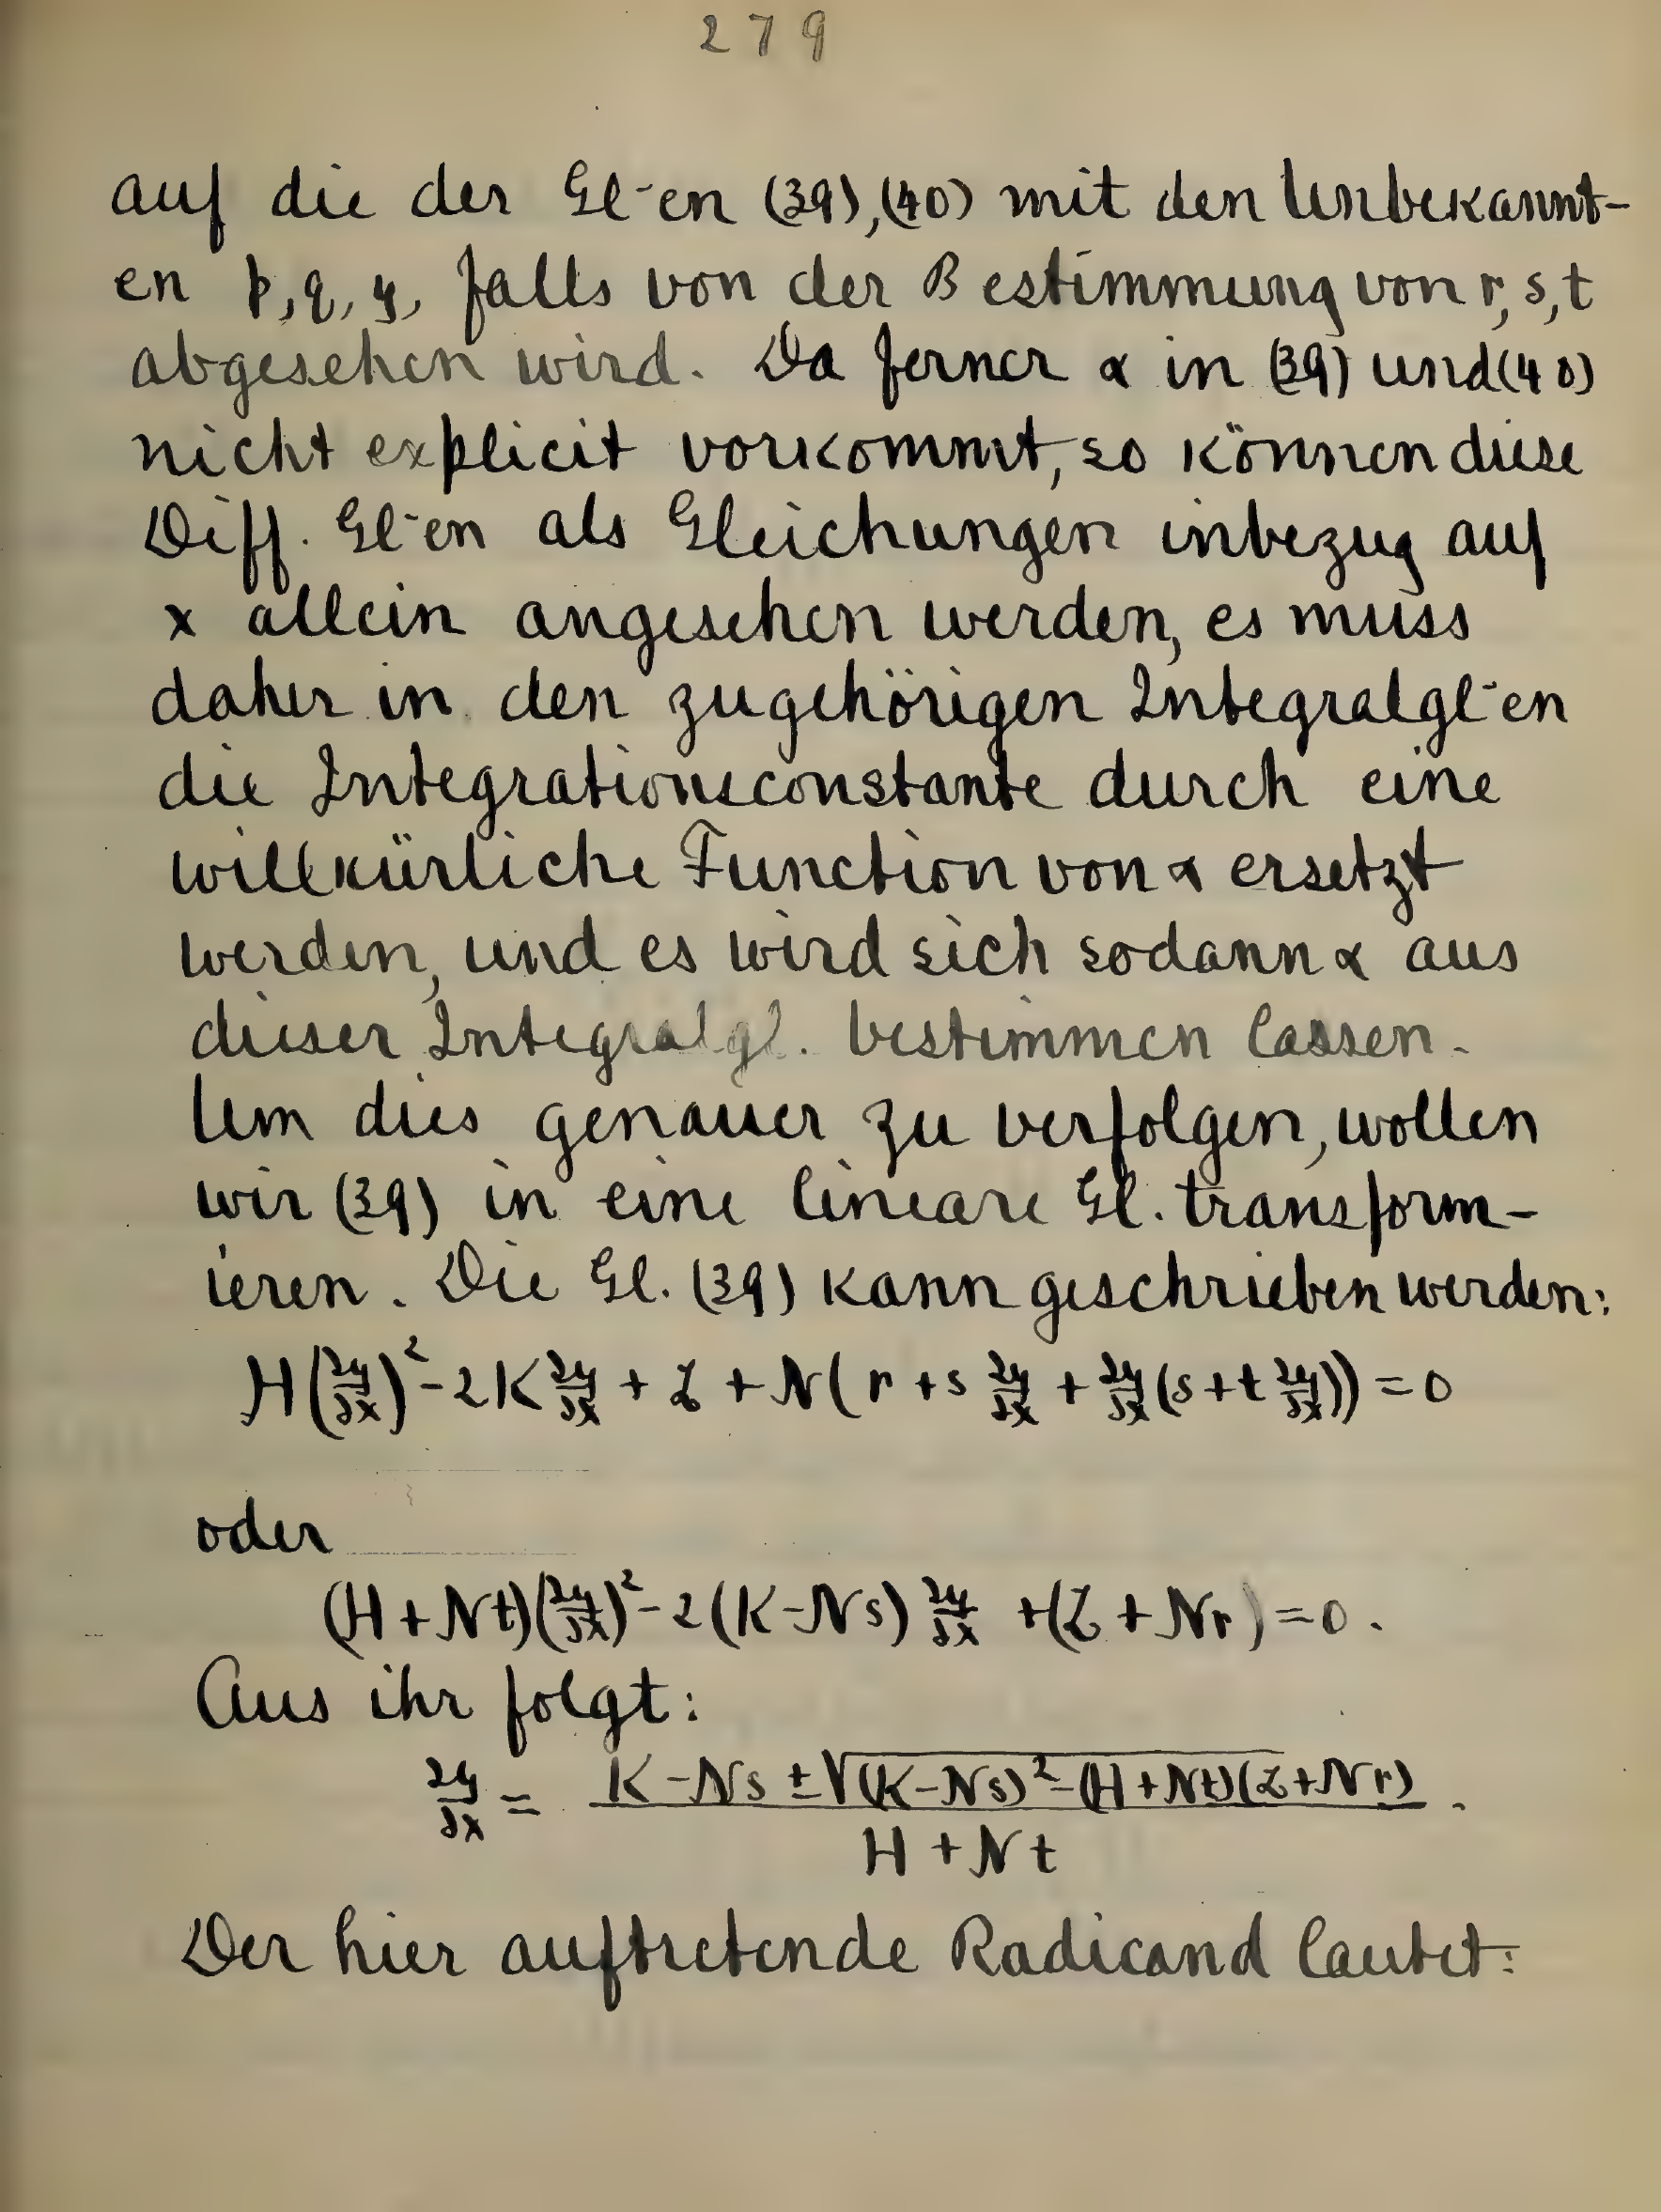 279
auf die der Gl-en (39),(40) mit den Unbekannt-
en p,q,y, falls von der Bestimmung von r,s,t
abgesehen wird. Da ferner α in (39) und (40)
nicht explicit vorkommt, so können diese
Diff. Gl-en als Gleichungen inbezug auf
x allein angesehen werden, es muss
daher in den zugehörigen Integralgl-en
die Integrationsconstante durch eine
willkürliche Function von α ersetzt
werden, und es wird sich sodann α aus
dieser Integralgl. bestimmen lassen.
Um dies genauer zu verfolgen, wollen
wir (39) in eine lineare Gl. transform-
ieren. Die Gl. (39) kann geschrieben werden:
H(∂y/∂x)² - 2K ∂y/∂x + L + N(r + s ∂y/∂x + ∂y/∂x (s + t ∂y/∂x)) = 0
oder
(H + Nt)(∂y/∂x)² - 2(K - Ns) ∂y/∂x + (L + Nr) = 0.
Aus ihr folgt:
∂y/∂x = (K - Ns ± √((K - Ns)² - (H + Nt)(L + Nr))) / (H + Nt).
Der hier auftretende Radicand lautet: